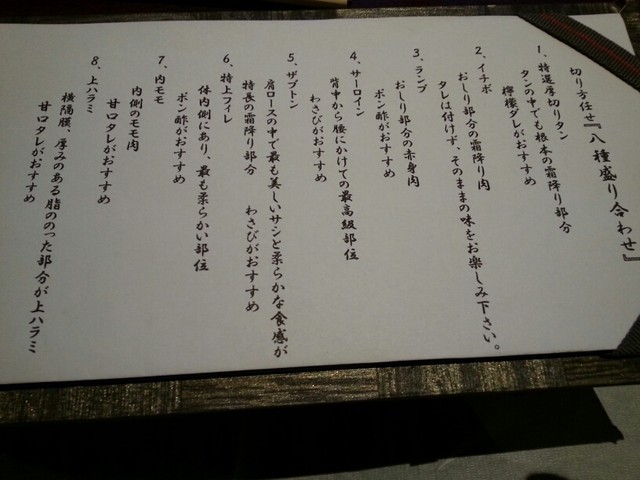 切り方任せ『八種盛り合わせ』
1、特選厚切りタン
タンの中でも根本の霜降り部分
檸檬ダレがおすすめ
2、イチボ
おしり部分の霜降り肉
タレは付けず、そのままの味をお楽しみ下さい。
3、ランプ
おしり部分の赤身肉
ポン酢がおすすめ
4、サーロイン
背中から腰にかけての最高級部位
わさびがおすすめ
5、ザブトン
肩ロースの中で最も美しいサシと柔らかな食感が
特長の霜降り部分 わさびがおすすめ
6、特上フィレ
体内側にあり、最も柔らかい部位
ポン酢がおすすめ
7、内モモ
内側のモモ肉
甘口タレがおすすめ
8、上ハラミ
横隔膜、厚みのある脂ののった部分が上ハラミ
甘口タレがおすすめ